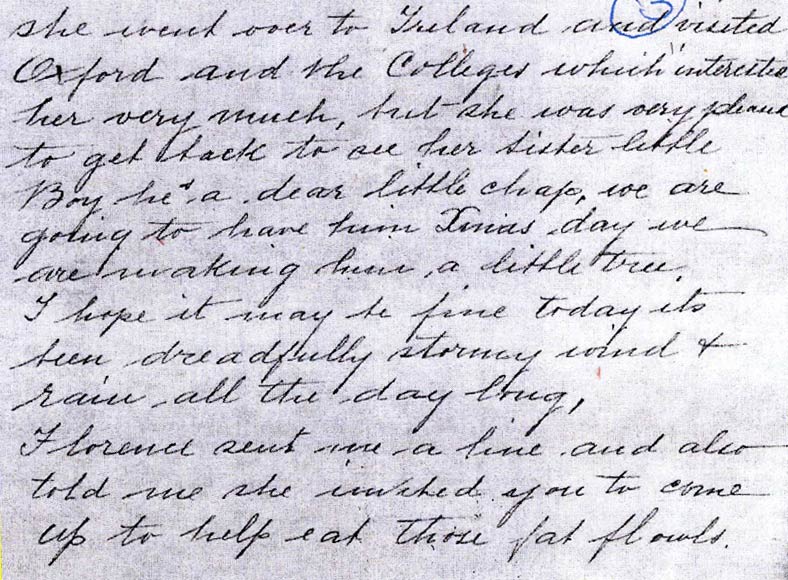 she went over to Ireland and visited
Oxford and the Colleges which interested
her very much, but she was very pleased
to get back to see her sister little
Boy he's a dear little chap, we are
going to have him Xmas day we
are making him a little tree.
I hope it may be fine today its
been dreadfully stormy wind &
rain all the day long,
Florence sent me a line and also
told me she invited you to come
up to help eat those fat flowls.